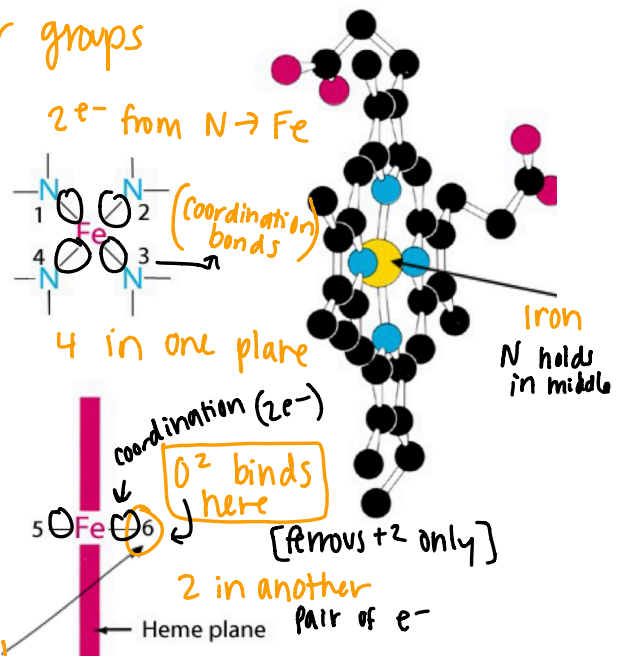 groups
2e- from N → Fe
N N
1 2
Fe
(coordination
bonds)
4 3
N N
4 in one plane
Iron
N holds
in middle
coordination (2e-)
O² binds
here
5 Fe 6
[ferrous +2 only]
2 in another
pair of e-
Heme plane